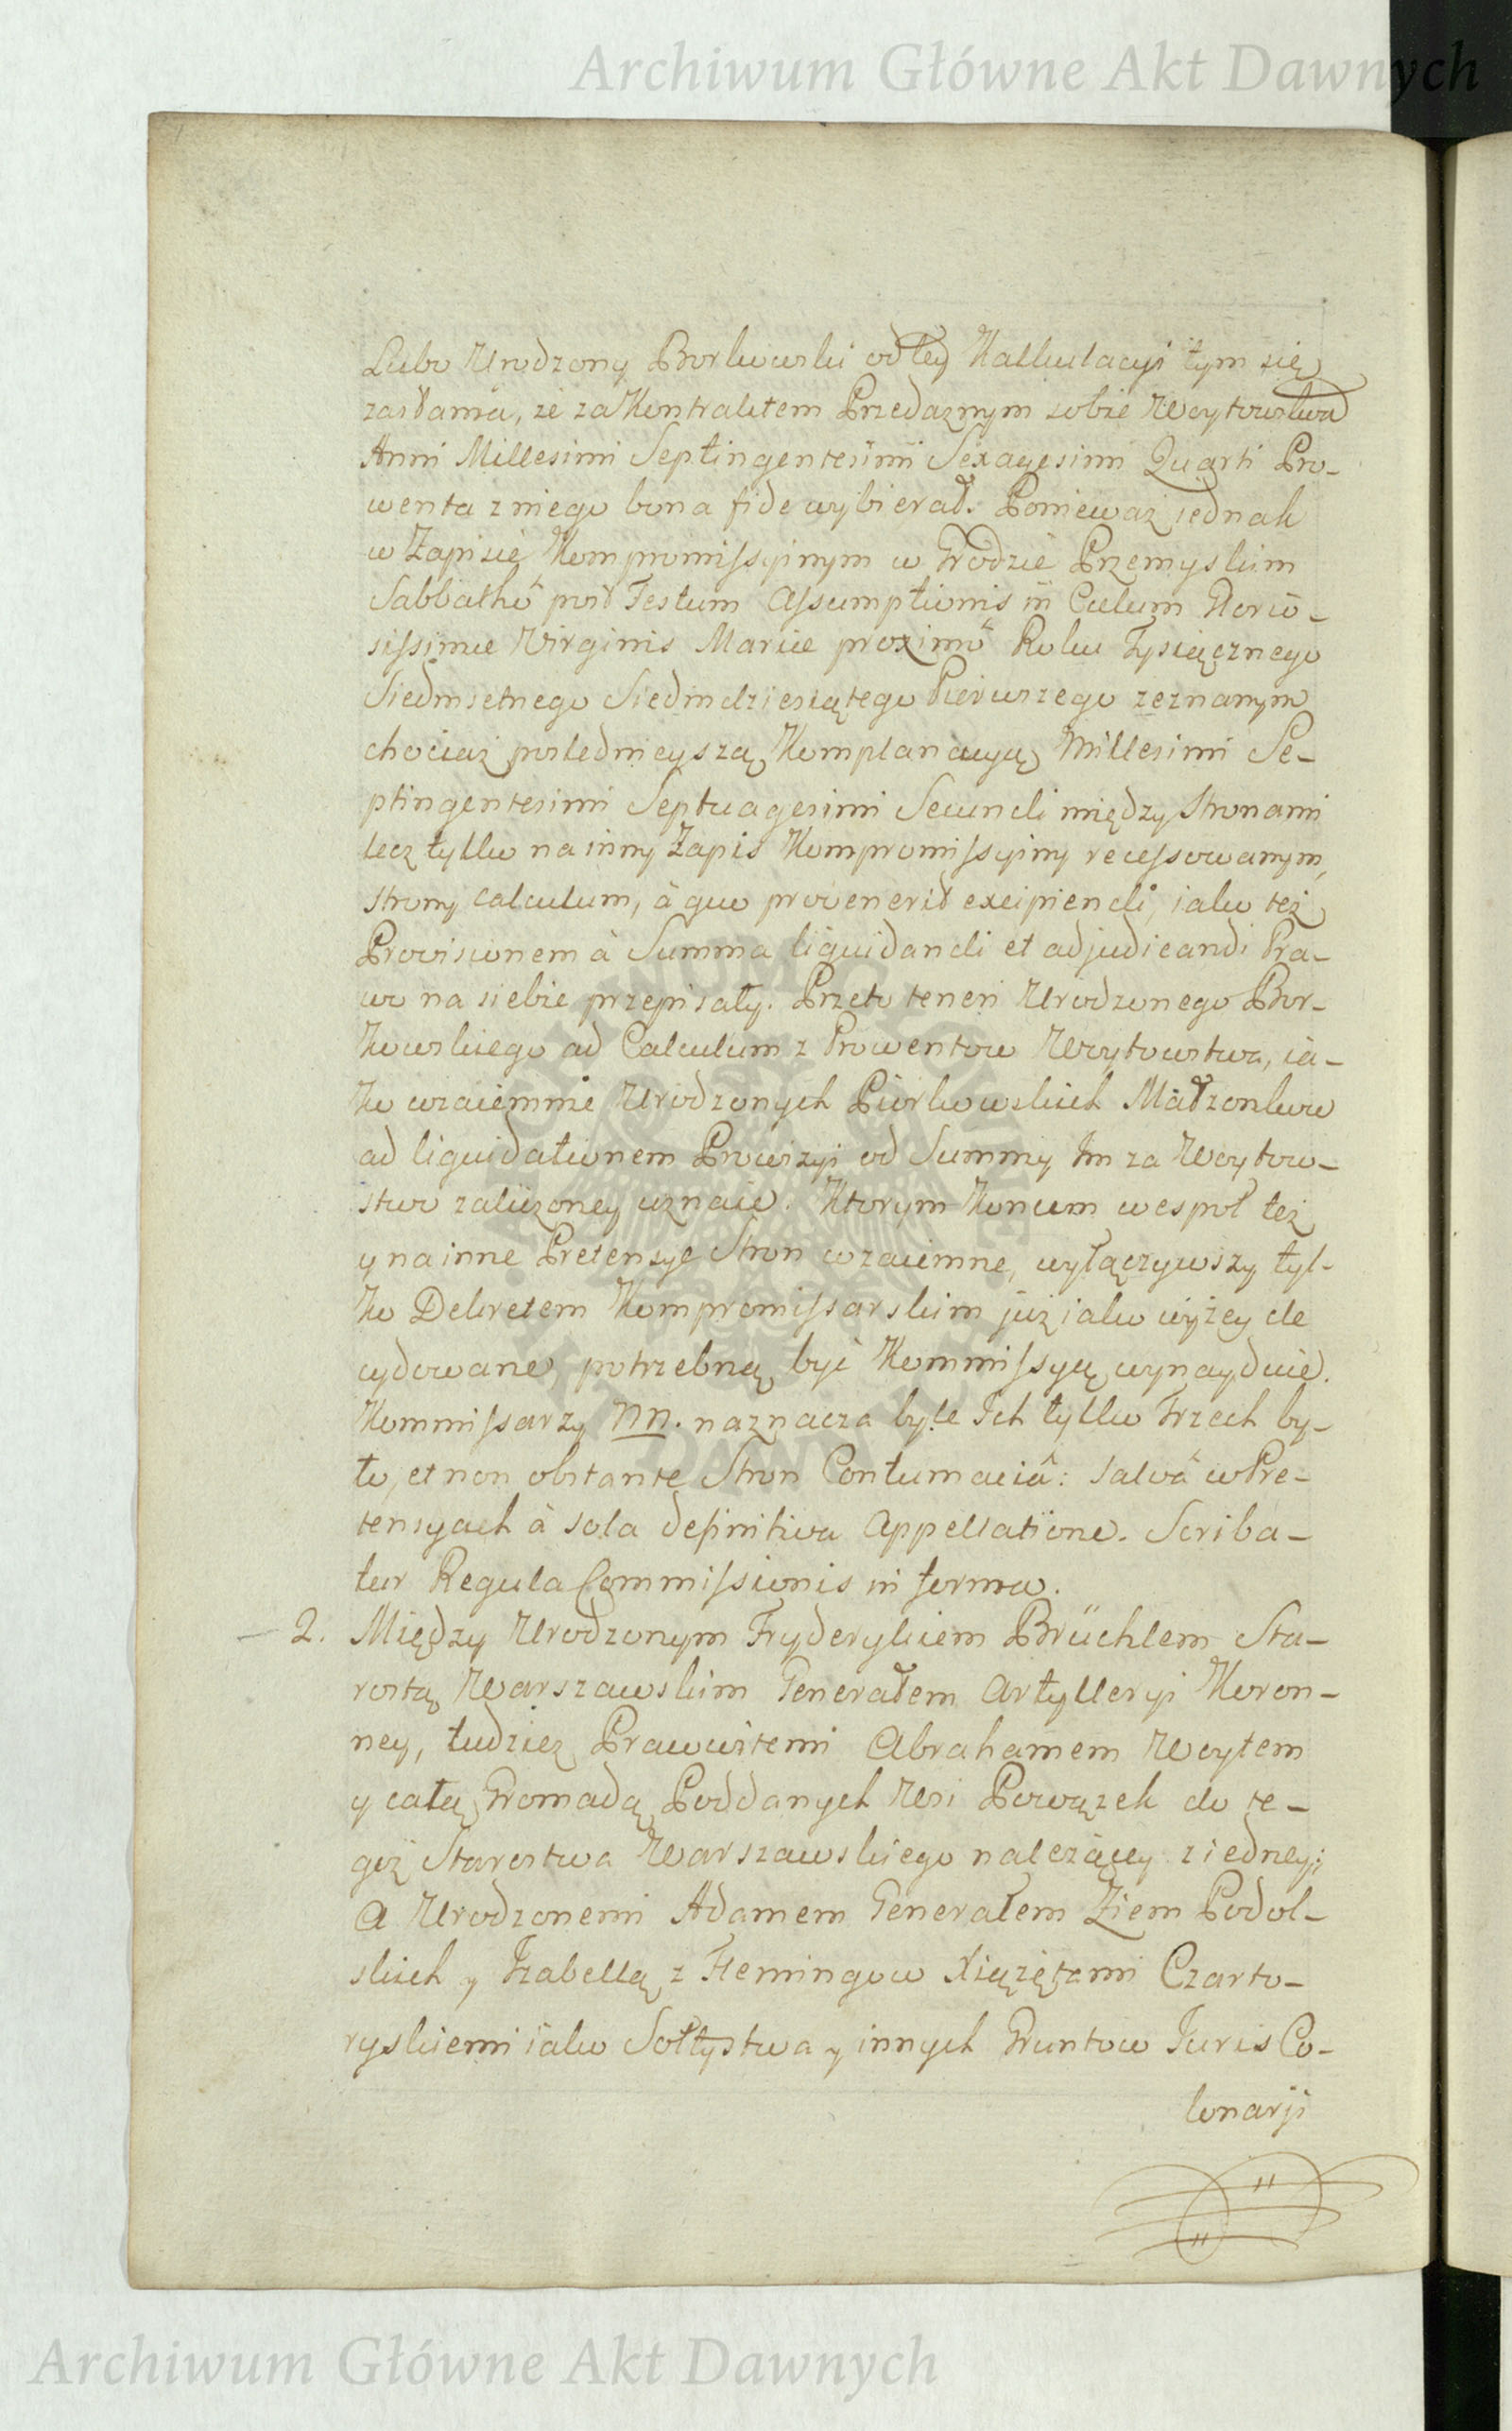 Archiwum Główne Akt Dawnych
Lubo Urodzony Borkowski od tey Kalkulacyi tym się
zasłania, że za Kontraktem Przedażnym sobie Woytowstwa
Anni Millesimi Septingentesimi Sexagesimi Quarti Pro-
wenta z niego bona fide wybierał. Ponieważ jednak
w Zapisie Kompromissyinym w Grodzie Przemyskim
Sabbathô post Festum Assumptionis in Cælum Glorio-
sissimæ Virginis Mariæ proximô Roku Tysiącznego
Siedmsetnego Siedmdziesiątego Pierwszego zeznanym
chociaż poslednieyszą Komplanacyą Millesimi Se-
ptingentesimi Septuagesimi Secundi między Stronami
lecz tylko na inny Zapis Kompromissyiny recessowanym,
strony calculum, à quo provenerit excipiendi, iako też
Provisionem à Summa liquidandi et adjudicandi Pra-
wo na siebie przepisały. Przeto teneri Urodzonego Bor-
kowskiego ad Calculum z Prowentow Woytowstwa, ia-
ko wzaiemnie Urodzonych Piorkowskich Małzonkow
ad liquidationem Prowizyi od Summy Im za Woytow-
stwo zaliczoney uznaie. Ktorym Koncem wespoł też
y na inne Pretensye Stron wzaiemne, wyłączywszy tyl-
ko Dekretem Kompromissarskim już iako wyżey de
cydowane, potrzebną być Kommissyą wynayduie.
Kommissarzy NN. naznacza byle Ich tylko Trzech by-
ło, et non obstante Stron Contumaciâ: salvâ w Pre-
tensyach à sola definitiva Appellatione. Scriba-
tur Regula Commissionis in forma.
2. Między Urodzonym Fryderykiem Brüchlem Sta-
rostą Warszawskim Generałem Artylleryi Koron-
ney, tudzież Prawowitemi Abrahamem Woytem
y całą Gromadą Poddanych Wsi Powązek do te-
goż Starostwa Warszawskiego należącey z iedney;
A Urodzonemi Adamem Generałem Ziem Podol-
skich y Izabellą z Flemingow Xiążętami Czarto-
ryskiemi iako Sołtystwa y innych Gruntow Juris Co-
lonarji
Archiwum Główne Akt Dawnych